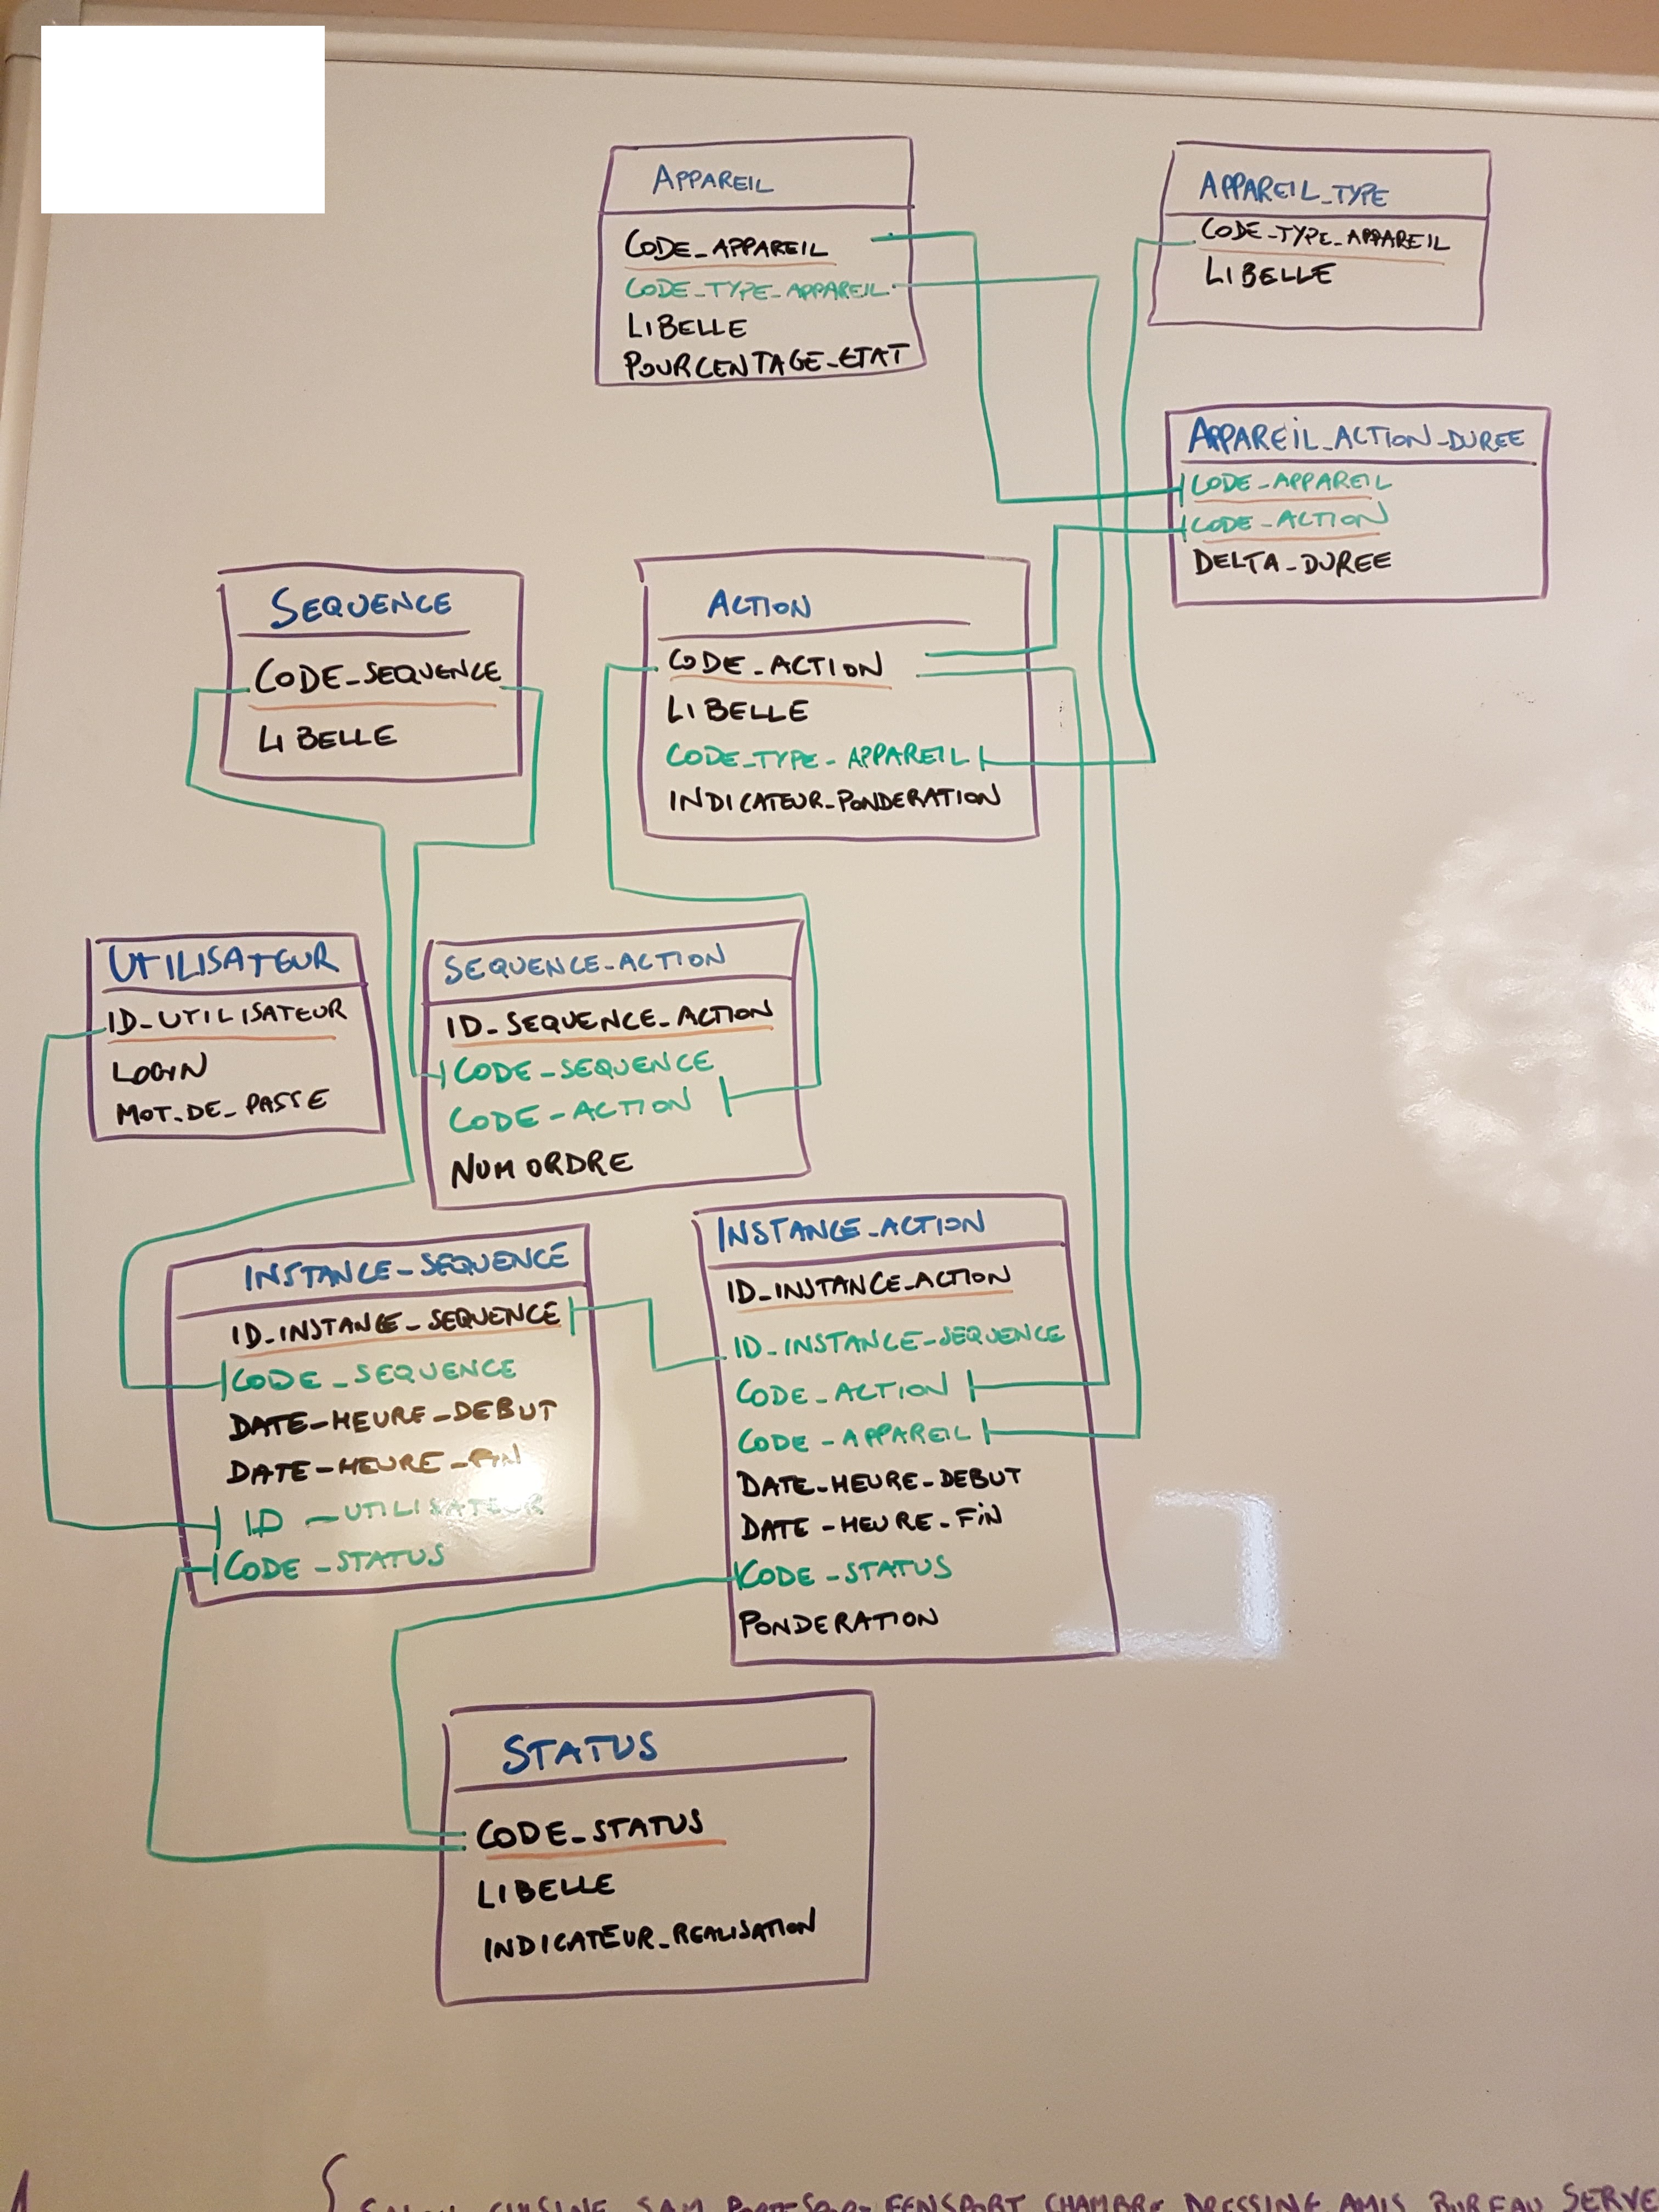 APPAREIL
CODE_APPAREIL
CODE_TYPE_APPAREIL
LIBELLE
POURCENTAGE_ETAT
APPAREIL_TYPE
CODE_TYPE_APPAREIL
LIBELLE
APPAREIL_ACTION_DUREE
CODE_APPAREIL
CODE_ACTION
DELTA_DUREE
SEQUENCE
CODE_SEQUENCE
LIBELLE
ACTION
CODE_ACTION
LIBELLE
CODE_TYPE_APPAREIL
INDICATEUR_PONDERATION
UTILISATEUR
ID_UTILISATEUR
LOGIN
MOT_DE_PASSE
SEQUENCE_ACTION
ID_SEQUENCE_ACTION
CODE_SEQUENCE
CODE_ACTION
NUM ORDRE
INSTANCE_SEQUENCE
ID_INSTANCE_SEQUENCE
CODE_SEQUENCE
DATE_HEURE_DEBUT
DATE_HEURE_FIN
ID_UTILISATEUR
CODE_STATUS
INSTANCE_ACTION
ID_INSTANCE_ACTION
ID_INSTANCE_SEQUENCE
CODE_ACTION
CODE_APPAREIL
DATE_HEURE_DEBUT
DATE_HEURE_FIN
CODE_STATUS
PONDERATION
STATUS
CODE_STATUS
LIBELLE
INDICATEUR_REALISATION
CUISINE SAM CHAMBRE DRESSING AMIS BUREAU SERVE